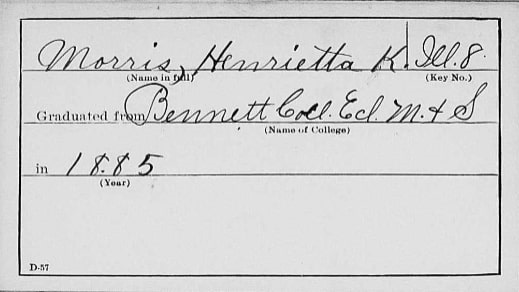 Morris, Henrietta K. Ill. 8.
(Name in full) (Key No.)
Graduated from Bennett Coll. Ecl. M. & S
(Name of College)
in 1885
(Year)
D-57